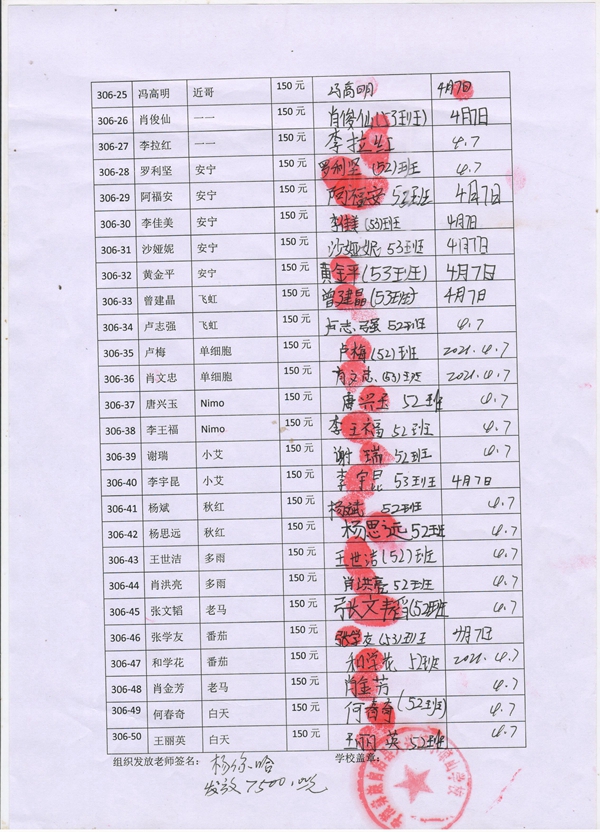 306-25 冯高明 近哥 150 元 冯高明 4月7日
306-26 肖俊仙 一一 150 元 肖俊仙(53班) 4月7日
306-27 李拉红 一一 150 元 李拉红 4.7
306-28 罗利坚 安宁 150 元 罗利坚(52)班 4.7
306-29 阿福安 安宁 150 元 阿福安 52班 4月7日
306-30 李佳美 安宁 150 元 李佳美(53)班 4月7日
306-31 沙娅妮 安宁 150 元 沙娅妮 53班 4月7日
306-32 黄金平 安宁 150 元 黄金平(53班) 4月7日
306-33 曾建晶 飞虹 150 元 曾建晶(53班) 4月7日
306-34 卢志强 飞虹 150 元 卢志强 52班 4.7
306-35 卢梅 单细胞 150 元 卢梅(52)班 2021.4.7
306-36 肖文忠 单细胞 150 元 肖文忠(53)班 2021.4.7
306-37 唐兴玉 Nimo 150 元 唐兴玉 52班 4.7
306-38 李王福 Nimo 150 元 李王福 52班 4.7
306-39 谢瑞 小艾 150 元 谢瑞 52班 4.7
306-40 李宇昆 小艾 150 元 李宇昆 53班 4月7日
306-41 杨斌 秋红 150 元 杨斌 52班 4.7
306-42 杨思远 秋红 150 元 杨思远 52班 4.7
306-43 王世洁 多雨 150 元 王世洁(52)班 4.7
306-44 肖洪亮 多雨 150 元 肖洪亮 52班 4.7
306-45 张文韬 老马 150 元 张文韬(52班 4.7
306-46 张学友 番茄 150 元 张学友(53)班 4月7日
306-47 和学花 番茄 150 元 和学花 52班 2021.4.7
306-48 肖金芳 老马 150 元 肖金芳 4.7
306-49 何春奇 白天 150 元 何春奇(52班) 4.7
306-50 王丽英 白天 150 元 王丽英 52班 4.7
组织发放老师签名: 学校盖章:
发放7500.